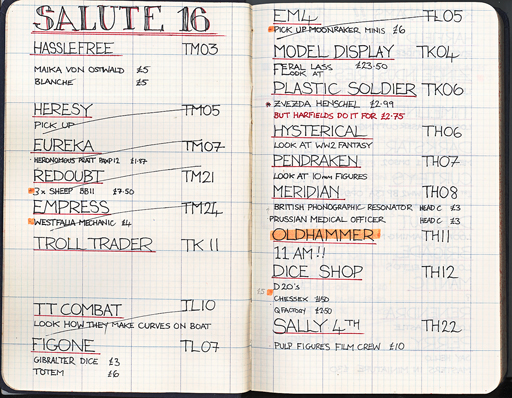 SALUTE 16
HASSLEFREE TM03
MAIKA VON OSTWALD £5
BLANCHE £5
HERESY TM05
PICK UP
EUREKA TM07
HERONOMOUS PRATT PMP12 £1.57
REDOUBT TM21
3 x SHEEP BB11 £7.50
EMPRESS TM24
WESTFALIA MECHANIC £4
TROLL TRADER TK11
TT COMBAT TL10
LOOK HOW THEY MAKE CURVES ON BOAT
FIGONE TL07
GIBRALTER DICE £3
TOTEM £6
EM4 TL05
PICK UP MOONRAKER MINIS £6
MODEL DISPLAY TK04
FERAL LASS £23.50
LOOK AT
PLASTIC SOLDIER TK06
ZVEZDA HENSCHEL £2.99
BUT HARFIELDS DO IT FOR £2.75
HYSTERICAL TH06
LOOK AT WW2 FANTASY
PENDRAKEN TH07
LOOK AT 10mm FIGURES
MERIDIAN TH08
BRITISH PHONOGRAPHIC RESONATOR HEAD C £3
PRUSSIAN MEDICAL OFFICER HEAD C £3
OLDHAMMER TH11
11 AM!!
DICE SHOP TH12
D20's
CHESSEX
Q FACTORY £2.50
SALLY 4TH TH22
PULP FIGURES FILM CREW £10